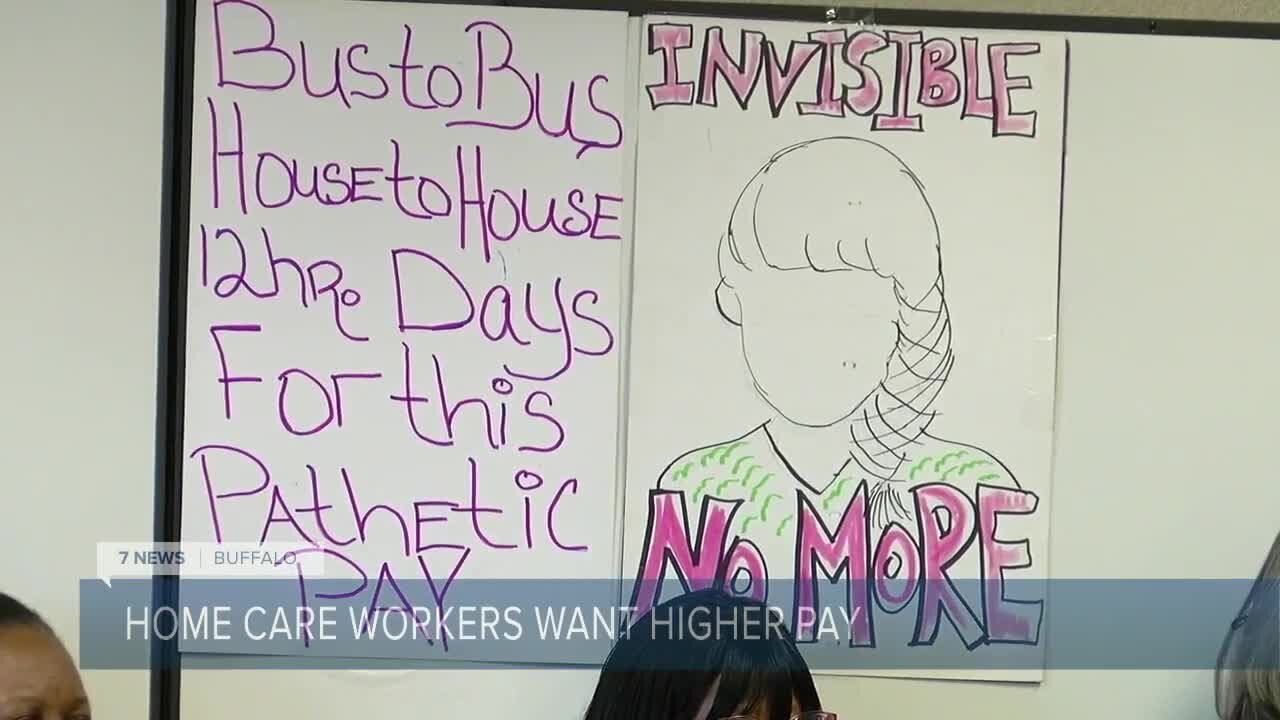 Bus to Bus
House to House
12 hr. Days
For this
Pathetic
PAY
INVISIBLE
No MoRE
7 NEWS | BUFFALO
HOME CARE WORKERS WANT HIGHER PAY